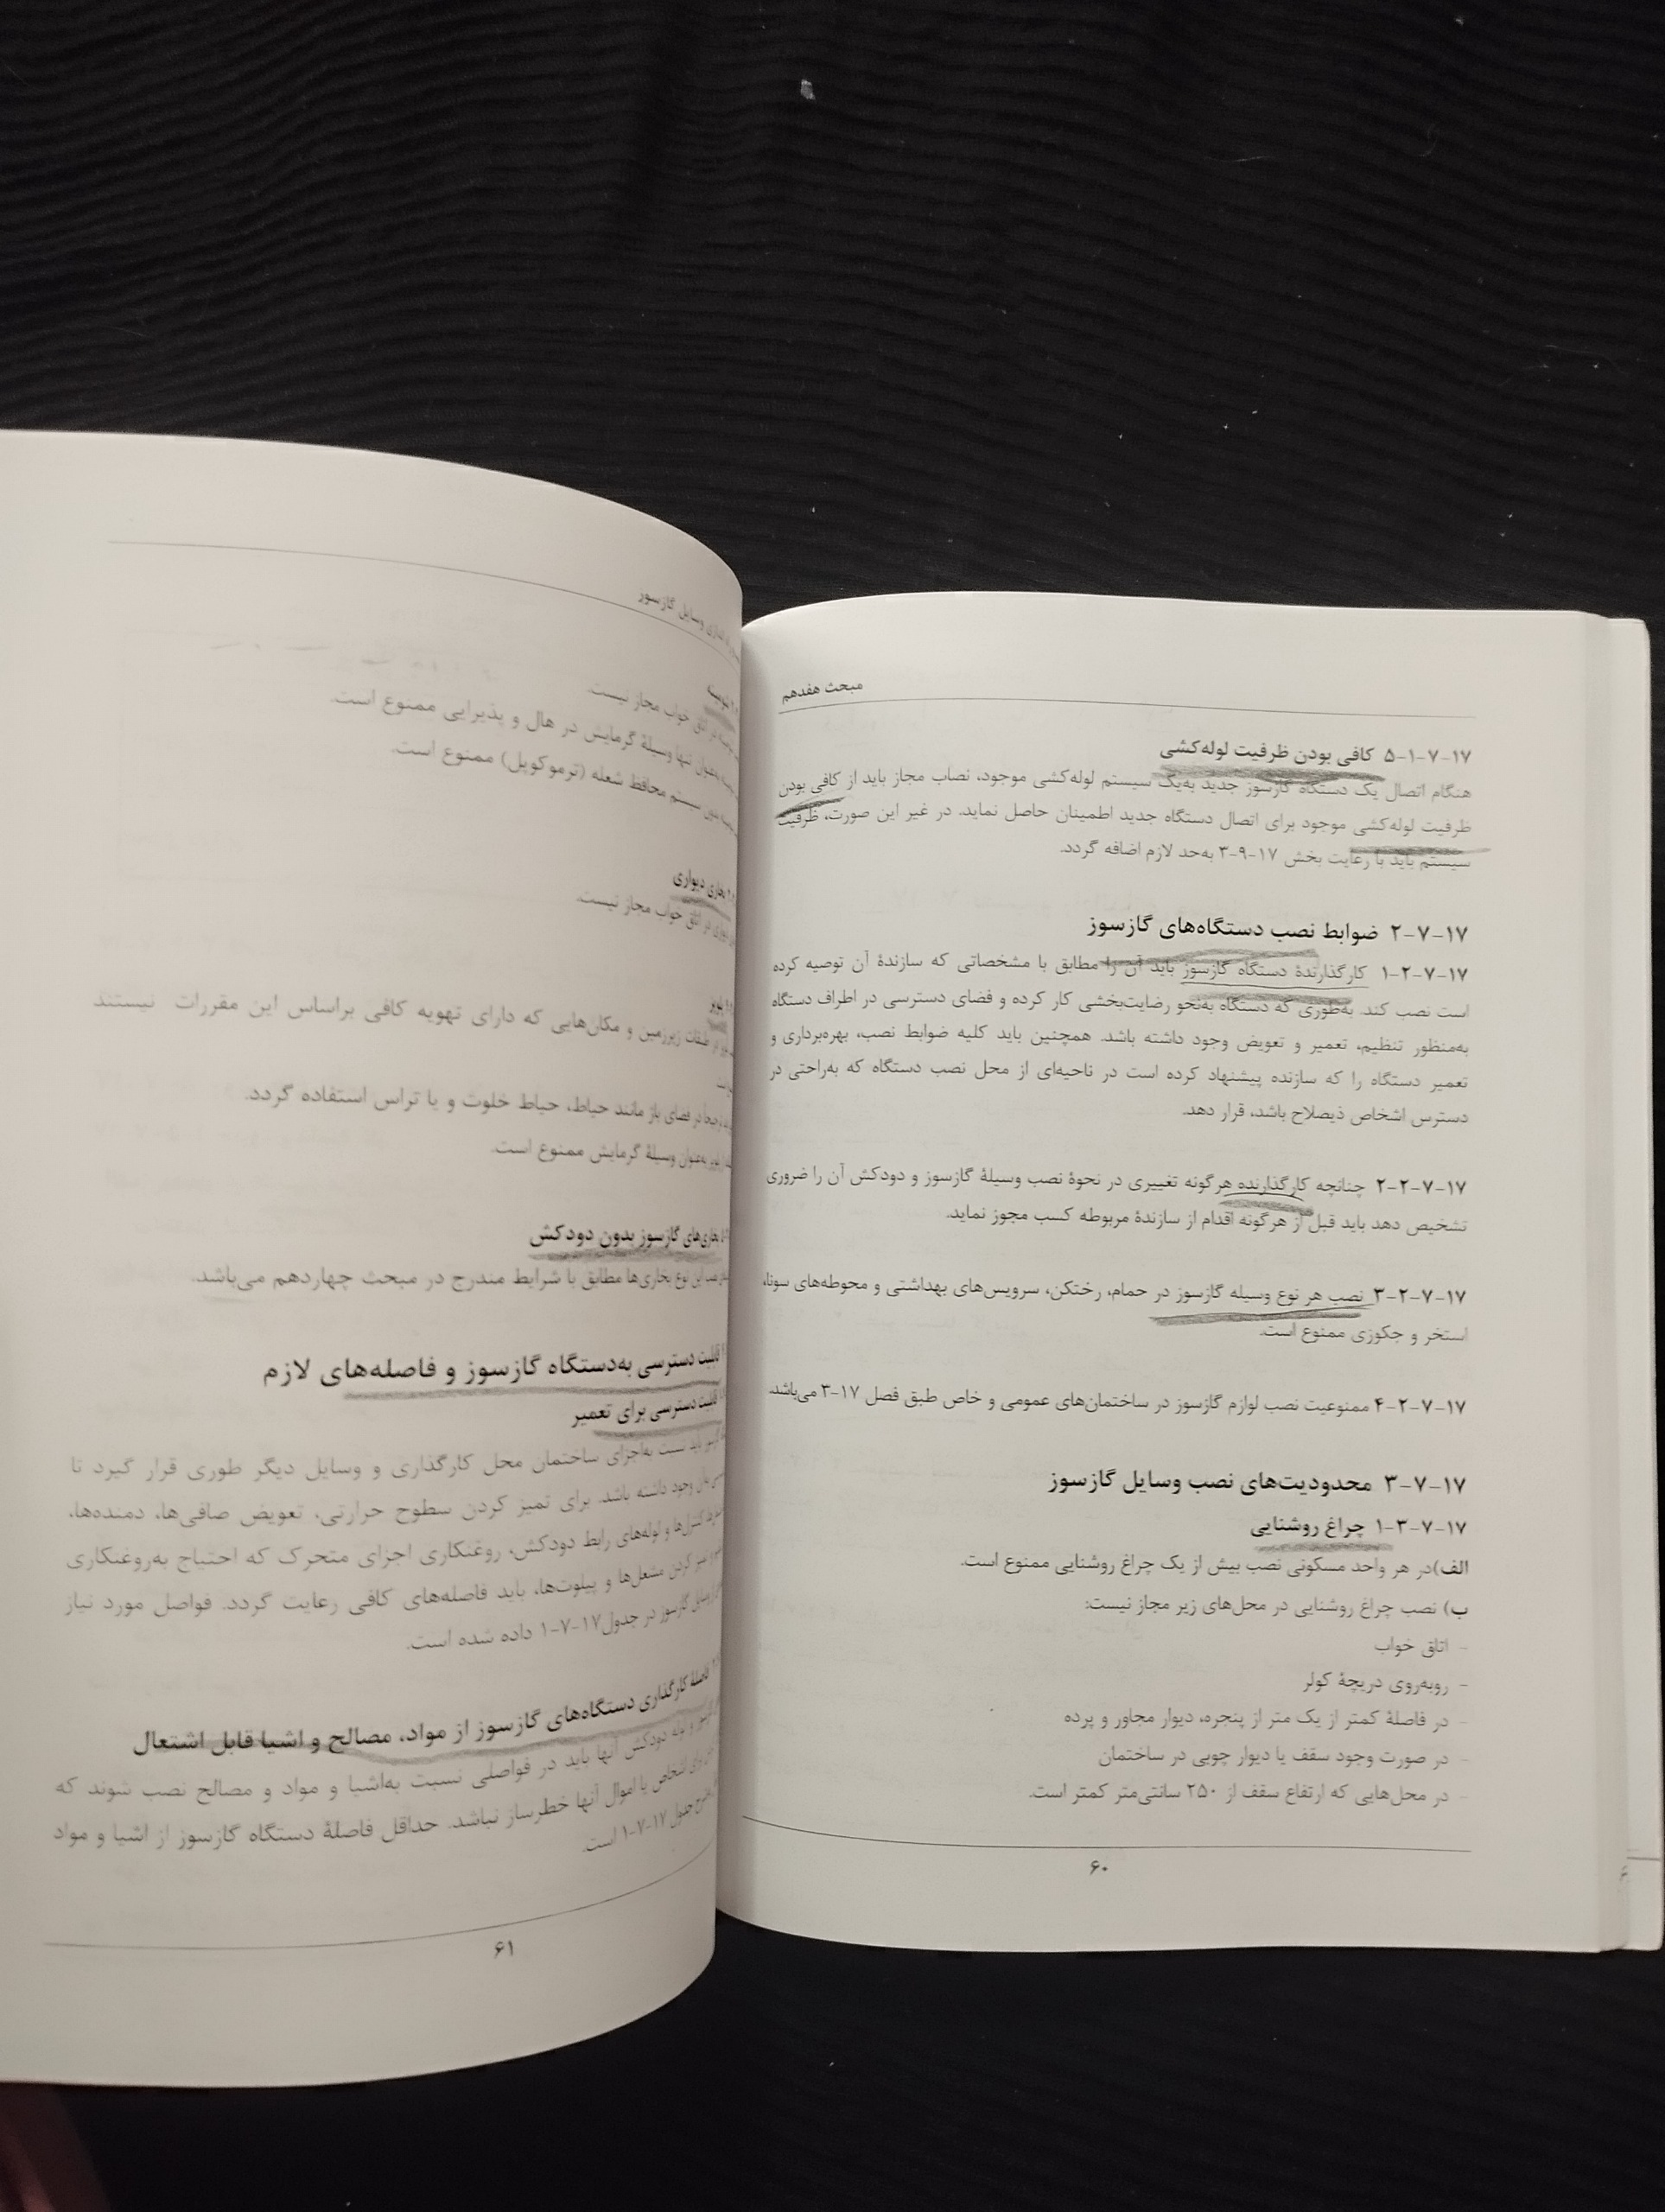 مبحث هفدهم
۱۷-۷-۱-۵ کافی بودن ظرفیت لوله‌کشی
هنگام اتصال یک دستگاه گازسوز جدید به‌یک سیستم لوله‌کشی موجود، نصاب مجاز باید از کافی بودن
ظرفیت لوله‌کشی موجود برای اتصال دستگاه جدید اطمینان حاصل نماید. در غیر این صورت، ظرفیت
سیستم باید با رعایت بخش ۱۷-۹-۳ به‌حد لازم اضافه گردد.
۱۷-۷-۲ ضوابط نصب دستگاه‌های گازسوز
۱۷-۷-۲-۱ کارگذارندهٔ دستگاه گازسوز باید آن را مطابق با مشخصاتی که سازندهٔ آن توصیه کرده
است نصب کند. به‌طوری که دستگاه به‌نحو رضایت‌بخشی کار کرده و فضای دسترسی در اطراف دستگاه
به‌منظور تنظیم، تعمیر و تعویض وجود داشته باشد. همچنین باید کلیه ضوابط نصب، بهره‌برداری و
تعمیر دستگاه را که سازنده پیشنهاد کرده است در ناحیه‌ای از محل نصب دستگاه که به‌راحتی در
دسترس اشخاص ذیصلاح باشد، قرار دهد.
۱۷-۷-۲-۲ چنانچه کارگذارنده هرگونه تغییری در نحوهٔ نصب وسیلهٔ گازسوز و دودکش آن را ضروری
تشخیص دهد باید قبل از هرگونه اقدام از سازندهٔ مربوطه کسب مجوز نماید.
۱۷-۷-۲-۳ نصب هر نوع وسیله گازسوز در حمام، رختکن، سرویس‌های بهداشتی و محوطه‌های سونا،
استخر و جکوزی ممنوع است.
۱۷-۷-۲-۴ ممنوعیت نصب لوازم گازسوز در ساختمان‌های عمومی و خاص طبق فصل ۱۷-۳ می‌باشد.
۱۷-۷-۳ محدودیت‌های نصب وسایل گازسوز
۱۷-۷-۳-۱ چراغ روشنایی
الف)در هر واحد مسکونی نصب بیش از یک چراغ روشنایی ممنوع است.
ب) نصب چراغ روشنایی در محل‌های زیر مجاز نیست:
- اتاق خواب
- روبه‌روی دریچهٔ کولر
- در فاصلهٔ کمتر از یک متر از پنجره، دیوار مجاور و پرده
- در صورت وجود سقف یا دیوار چوبی در ساختمان
- در محل‌هایی که ارتفاع سقف از ۲۵۰ سانتی‌متر کمتر است.
۶۰
وسایل گازسوز
در اتاق خواب مجاز نیست.
تنها وسیلهٔ گرمایش در هال و پذیرایی ممنوع است.
بدون سیستم محافظ شعله (ترموکوپل) ممنوع است.
بخاری دیواری
دیواری در اتاق خواب مجاز نیست.
طبقات زیرزمین و مکان‌هایی که دارای تهویه کافی براساس این مقررات نیستند
در فضای باز مانند حیاط، حیاط خلوت و یا تراس استفاده گردد.
به‌عنوان وسیلهٔ گرمایش ممنوع است.
بخاری‌های گازسوز بدون دودکش
نصب این نوع بخاری‌ها مطابق با شرایط مندرج در مبحث چهاردهم می‌باشد.
قابلیت دسترسی به‌دستگاه گازسوز و فاصله‌های لازم
قابلیت دسترسی برای تعمیر
باید نسبت به‌اجزای ساختمان محل کارگذاری و وسایل دیگر طوری قرار گیرد تا
وجود داشته باشد. برای تمیز کردن سطوح حرارتی، تعویض صافی‌ها، دمنده‌ها،
کنترل‌ها و لوله‌های رابط دودکش، روغنکاری اجزای متحرک که احتیاج به‌روغنکاری
و تمیز کردن مشعل‌ها و پیلوت‌ها، باید فاصله‌های کافی رعایت گردد. فواصل مورد نیاز
وسایل گازسوز در جدول۱۷-۷-۱ داده شده است.
فاصلهٔ کارگذاری دستگاه‌های گازسوز از مواد، مصالح و اشیا قابل اشتعال
و لوله دودکش آنها باید در فواصلی نسبت به‌اشیا و مواد و مصالح نصب شوند که
برای اشخاص یا اموال آنها خطرساز نباشد. حداقل فاصلهٔ دستگاه گازسوز از اشیا و مواد
جدول ۱۷-۷-۱ است.
۶۱